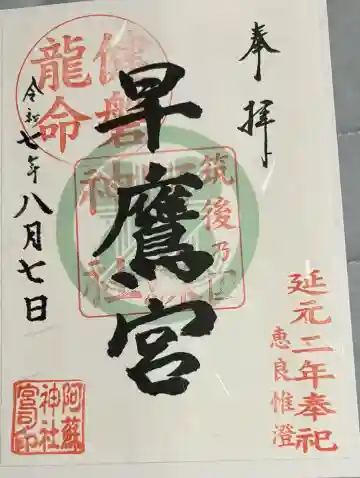 奉拝
延元二年奉祀
恵良惟澄
早鷹宮
健磐
龍命
令和七年八月七日
阿蘇
神社
宮司印